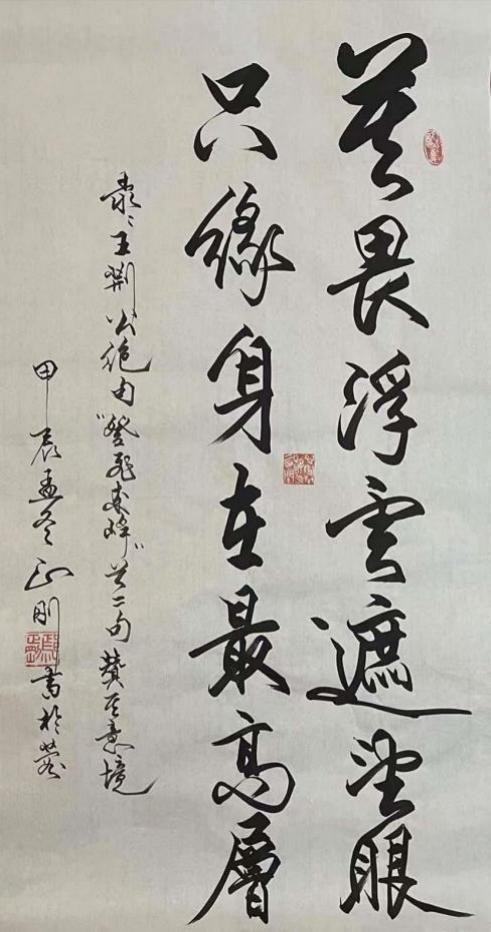 莫畏浮雲遮望眼
只緣身在最高層
录王荆公絕句“登飛來峰”其二句贊其意境
甲辰孟冬正剛書於